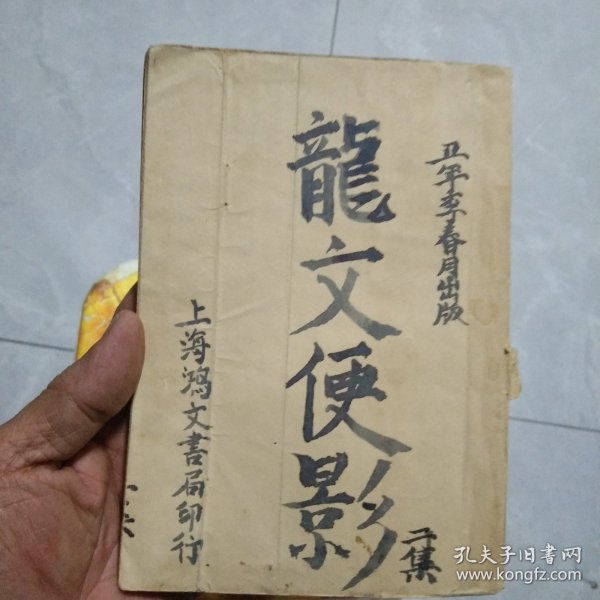 丑年季春月出版
龍文便影
二集
上海鴻文書局印行
孔夫子旧书网
www.kongfz.com